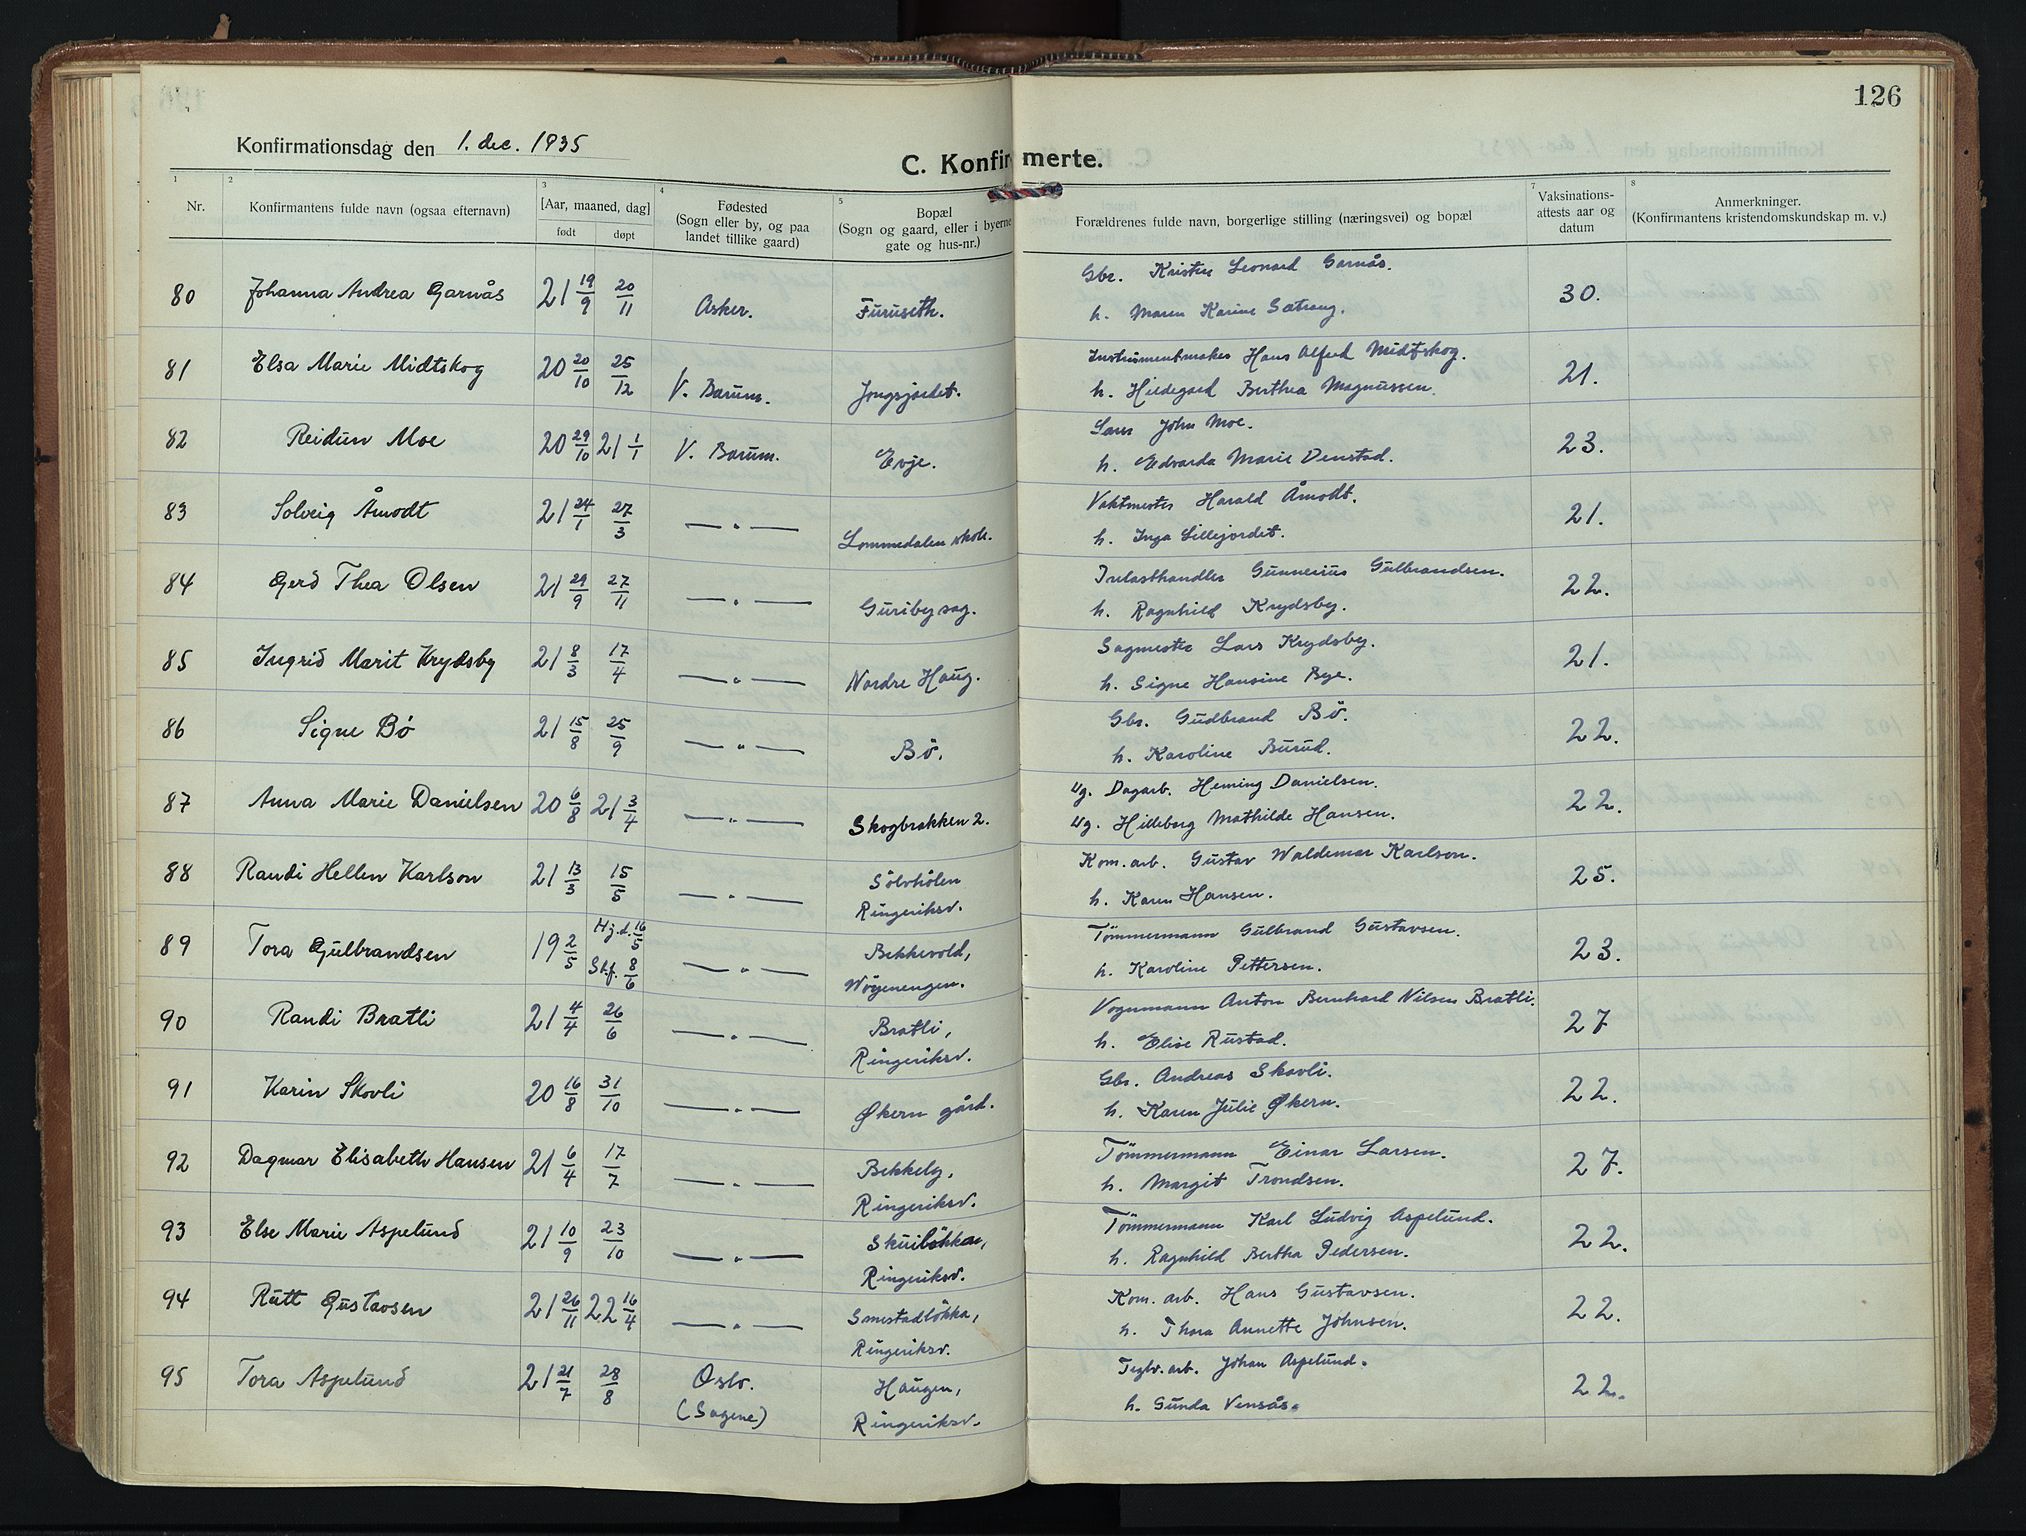 126
Konfirmationsdag den 1. dec. 1935
C. Konfirmerte.
1 2 3 4 5 7 8
Nr. Konfirmantens fulde navn (ogsaa efternavn) [Aar, maaned, dag] født døpt Fødested (Sogn eller by, og paa landet tillike gaard) Bopæl (Sogn og gaard, eller i byerne gate og hus-nr.) Forældrenes fulde navn, borgerlige stilling (næringsvei) og bopæl Vaksinationsattests aar og datum Anmerkninger. (Konfirmantens kristendomskundskap m. v.)
80 Johanna Andrea Garnås 21 19/9 20/11 Asker. Furuseth. Gbr. Kristen Leonard Garnås. 30.
h. Maren Karine Sætrang.
81 Elsa Marie Midtskog 20 20/10 25/12 V. Bærum. Jongsjordet. Instrumentmaker Hans Alfred Midtskog. 21.
h. Hildegard Berthea Magnussen.
82 Reidun Moe 20 29/10 21 1/1 V. Bærum. Evje. Lars John Moe. 23.
h. Edvarda Marie Denstad.
83 Solveig Åmodt 21 24/1 27/3 —„— Lommedalen skole. Vaktmester Harald Åmodt. 21.
h. Inga Lillejordet.
84 Gerd Thea Olsen 21 29/9 27/11 —„— Guriby sag. Trelasthandler Gunnerius Gulbrandsen. 22.
h. Ragnhild Krydsby.
85 Ingrid Marit Krydsby 21 8/3 17/4 —„— Nordre Haug. Sagmester Lars Krydsby. 21.
h. Signe Hansine Bye.
86 Signe Bö 21 15/8 25/9 —„— Bö. Gbr. Gudbrand Bö. 22.
h. Karoline Burud.
87 Anna Marie Danielsen 20 6/8 21 3/4 —„— Skogbrakken 2. Ug. Dagarb. Heming Danielsen. 22.
Ug. Hilleborg Mathilde Hansen.
88 Randi Hellen Karlson 21 13/3 15/5 —„— Sölvhölen Ringeriksv. Kom. arb. Gustav Waldemar Karlson. 25.
h. Karen Hansen.
89 Tora Gulbrandsen 19 2/5 Hj.d. 16/5 St.f. 8/6 —„— Bekkevold, Wøyenengen. Tömmermann Gulbrand Gustavsen. 23.
h. Karoline Pettersen.
90 Randi Bratli 21 4/4 26/6 —„— Bratli, Ringeriksv. Vognmann Anton Bernhard Nilsen Bratli. 27
h. Elise Rustad.
91 Karin Skovli 20 16/8 31/10 —„— Økern gård. Gbr. Andreas Skovli. 22.
h. Karen Julie Økern.
92 Dagmar Elisabeth Hansen 21 6/4 17/7 —„— Bekkely, Ringeriksv. Tömmermann Einar Larsen. 27.
h. Margit Trondsen.
93 Else Marie Aspelund 21 10/9 23/10 —„— Skuilökka, Ringeriksv. Tömmermann Karl Ludvig Aspelund. 22.
h. Ragnhild Bertha Pedersen.
94 Rutt Gustavsen 21 26/11 22 16/4 —„— Smestadlökka, Ringeriksv. Kom. arb. Hans Gustavsen. 22.
h. Thora Annette Johnsen.
95 Tora Aspelund 21 21/7 28/8 Oslo. (Sagene) Haugen, Ringeriksv. Teglv. arb. Johan Aspelund. 22.
h. Gunda Vensås.